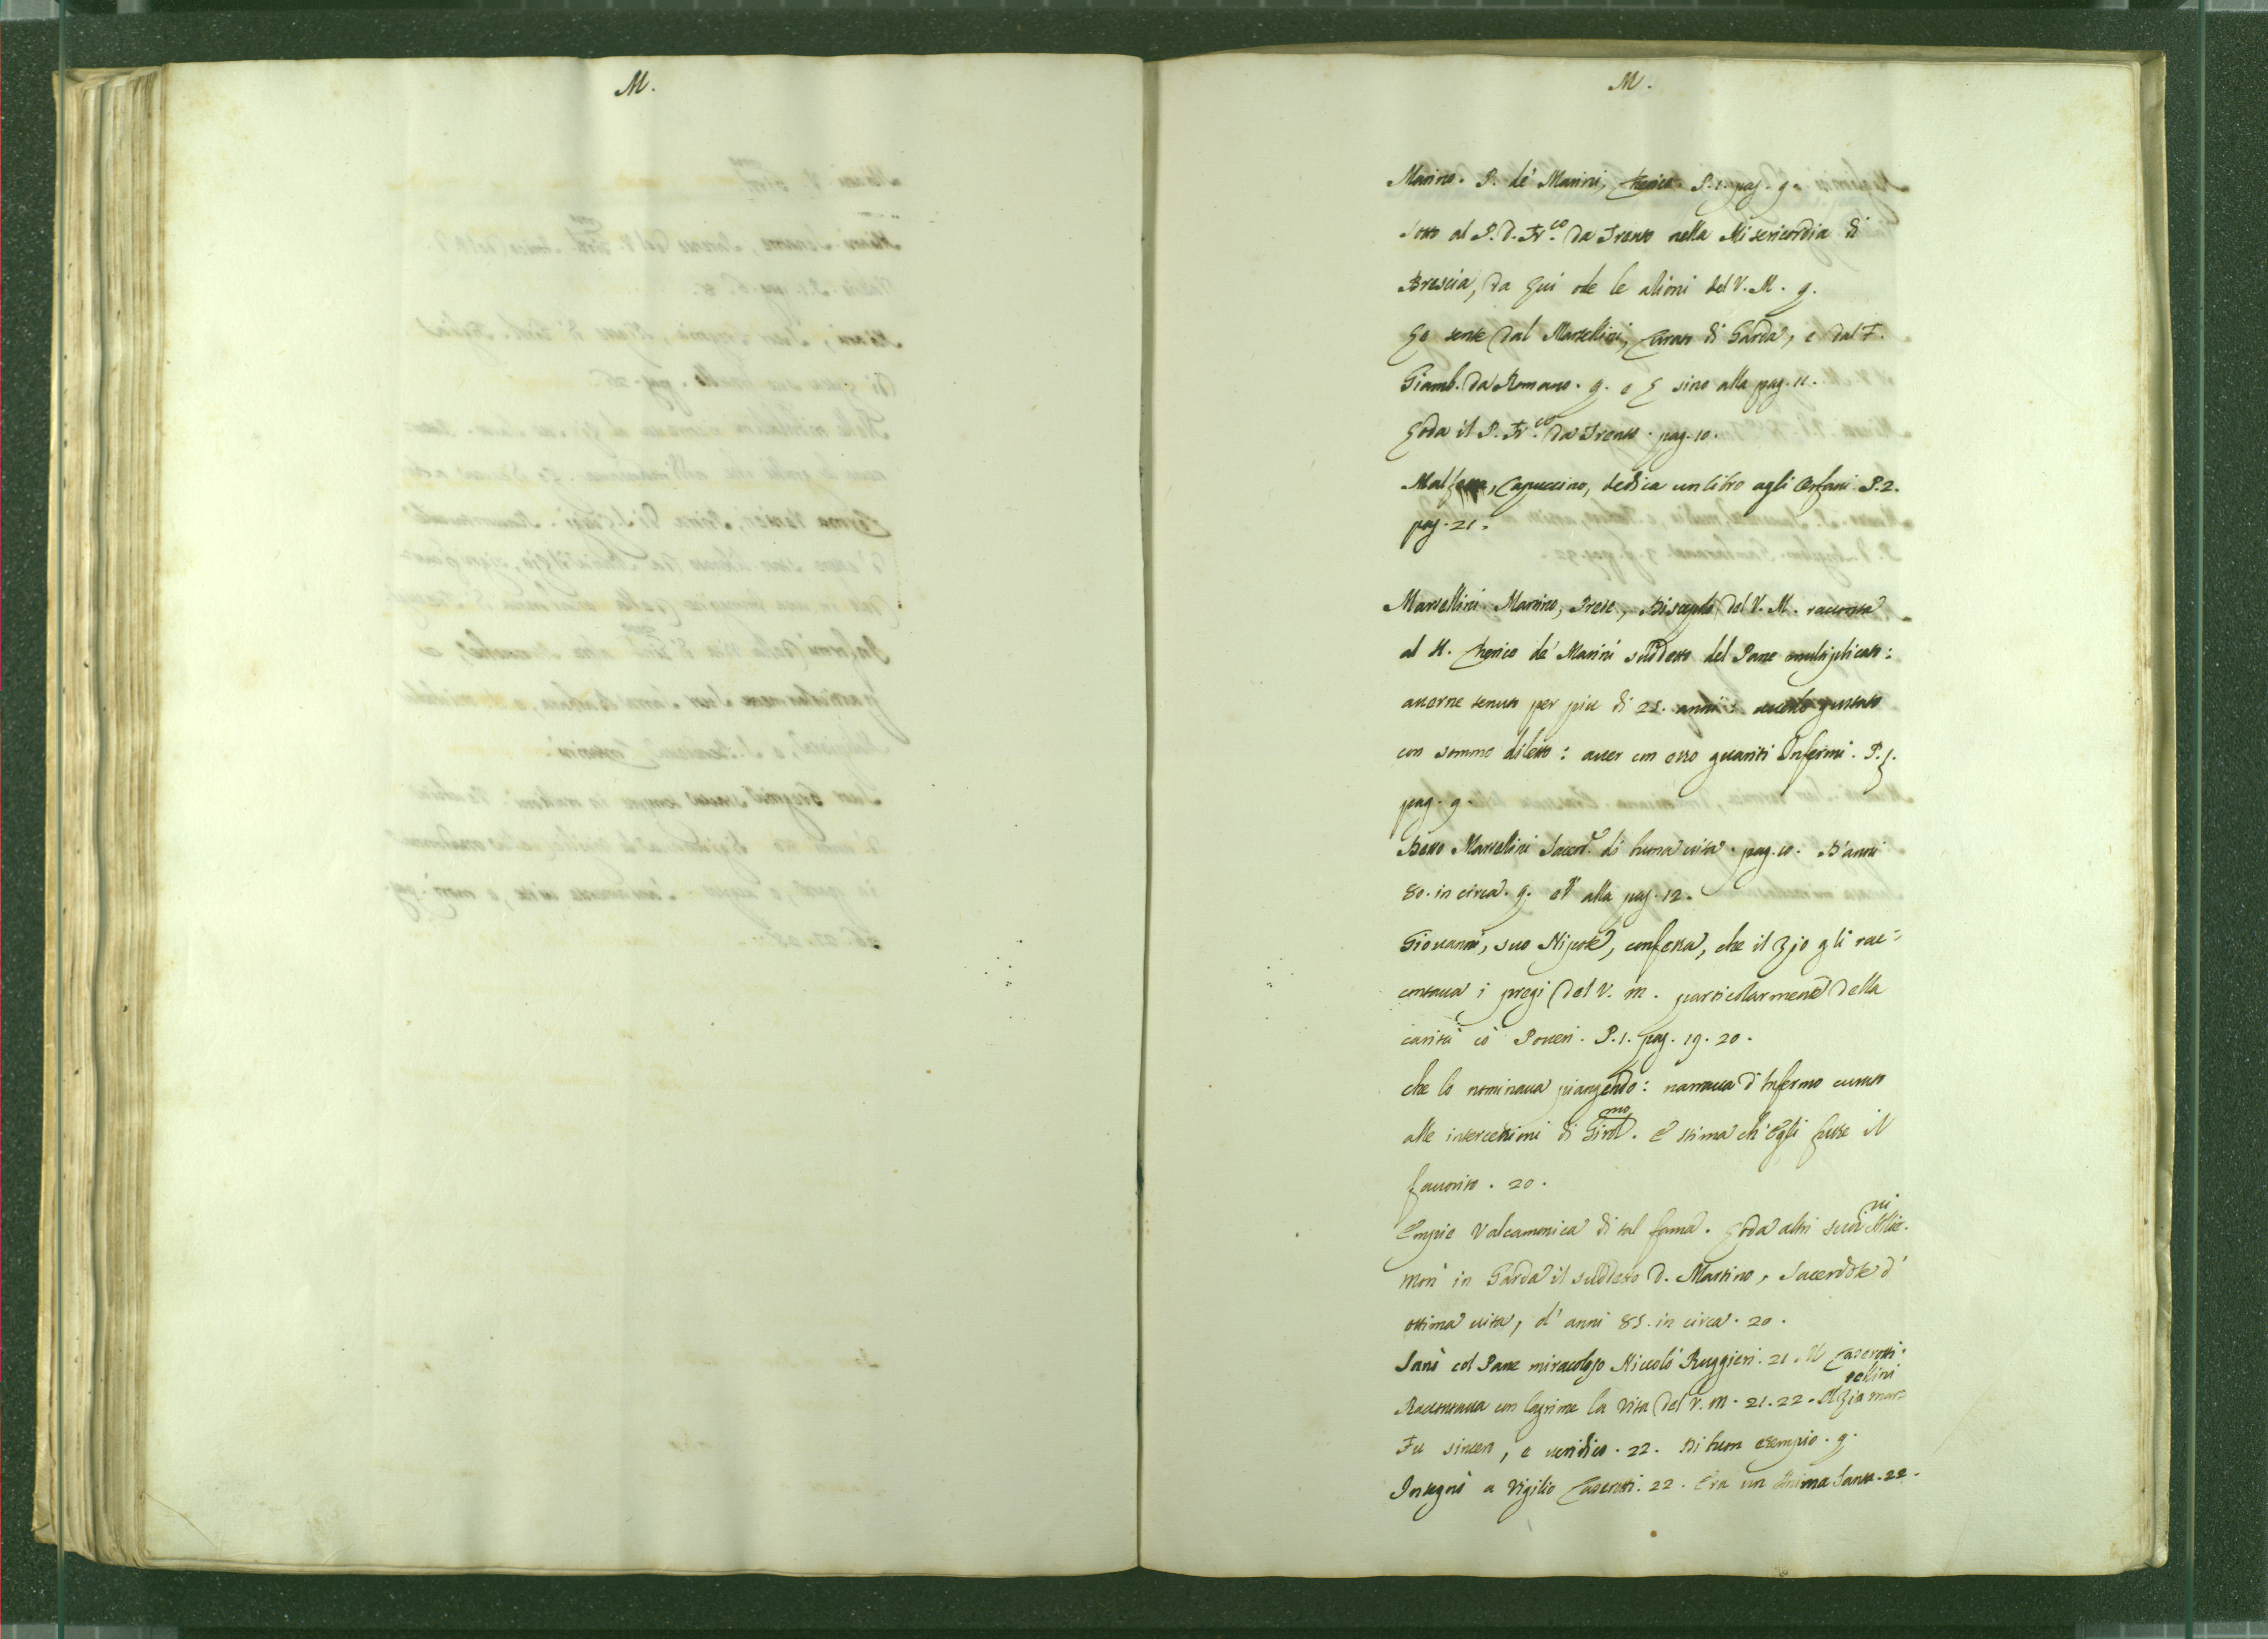 M.
M.
Marino. P. de' Marini, Cherico. P. 1. pag. 9.
sotto al P. D. Fr.co da Trento nella Misericordia di
Brescia, da cui ode le azioni del V. M. 9.
sente dal Martellini, Curato di Garda, e dal F.
Giamb. da Romano. 9. e sino alla pag. 11.
Loda il P. Fr.co da Trento. pag. 10.
Capuccino, dedica un libro agli Orfani. P. 2.
pag. 21.
Martellini. Martino, Prete, Discepolo del V. M. racconta
al H. Cherico de' Marini suddetto del Pane multiplicato:
auerne tenuto per più di 25. anni: auerlo gustato
con sommo diletto: auer con esso guariti Infermi. P. 1.
pag. 9.
Detto Martellini Sacerd.e di buona uita. pag. 10. D'anni
80. in circa. 9. et alla pag. 12.
Giouanni, suo Nipote, confessa, che il Zio gli rac=
contaua i pregi del V. M. particolarmente della
carità co' Poueri. P. 1. pag. 19. 20.
che lo nominaua piangendo: narraua d'Infermo curato
alle intercessioni di Girol.mo. E stima ch'Egli fusse il
fauorito. 20.
Empie Valcamonica di tal fama. Loda altri serui
Morì in Garda il suddetto D. Martino, Sacerdote d'
ottima uita, d'anni 85. in circa. 20.
Sanò col Pane miracoloso Niccolò Ruggieri. 21. Caserotti.
Raccontaua con lagrime la Vita del V. M. 21. 22. Al Zio Mar=
tellini
Fu sincero, e ueridico. 22. Di buon esempio. 9.
Insegnò a Vigilio Caserotti. 22. Era un Anima Santa. 22.